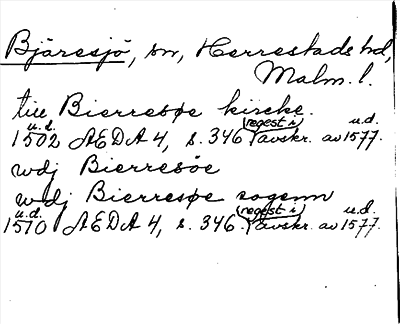 Bjäresjö, sn, Herrestads hd,
Malm. l.
till Bierresøe kircke.
1502 u.d. ÆDA 4, s. 346 (regest i avskr. av 1577. u.d.
wdj Bierresöe
wdj Bierresøe sogenn
1510 u.d. ÆDA 4, s. 346. (regest i avskr. av 1577. u.d.